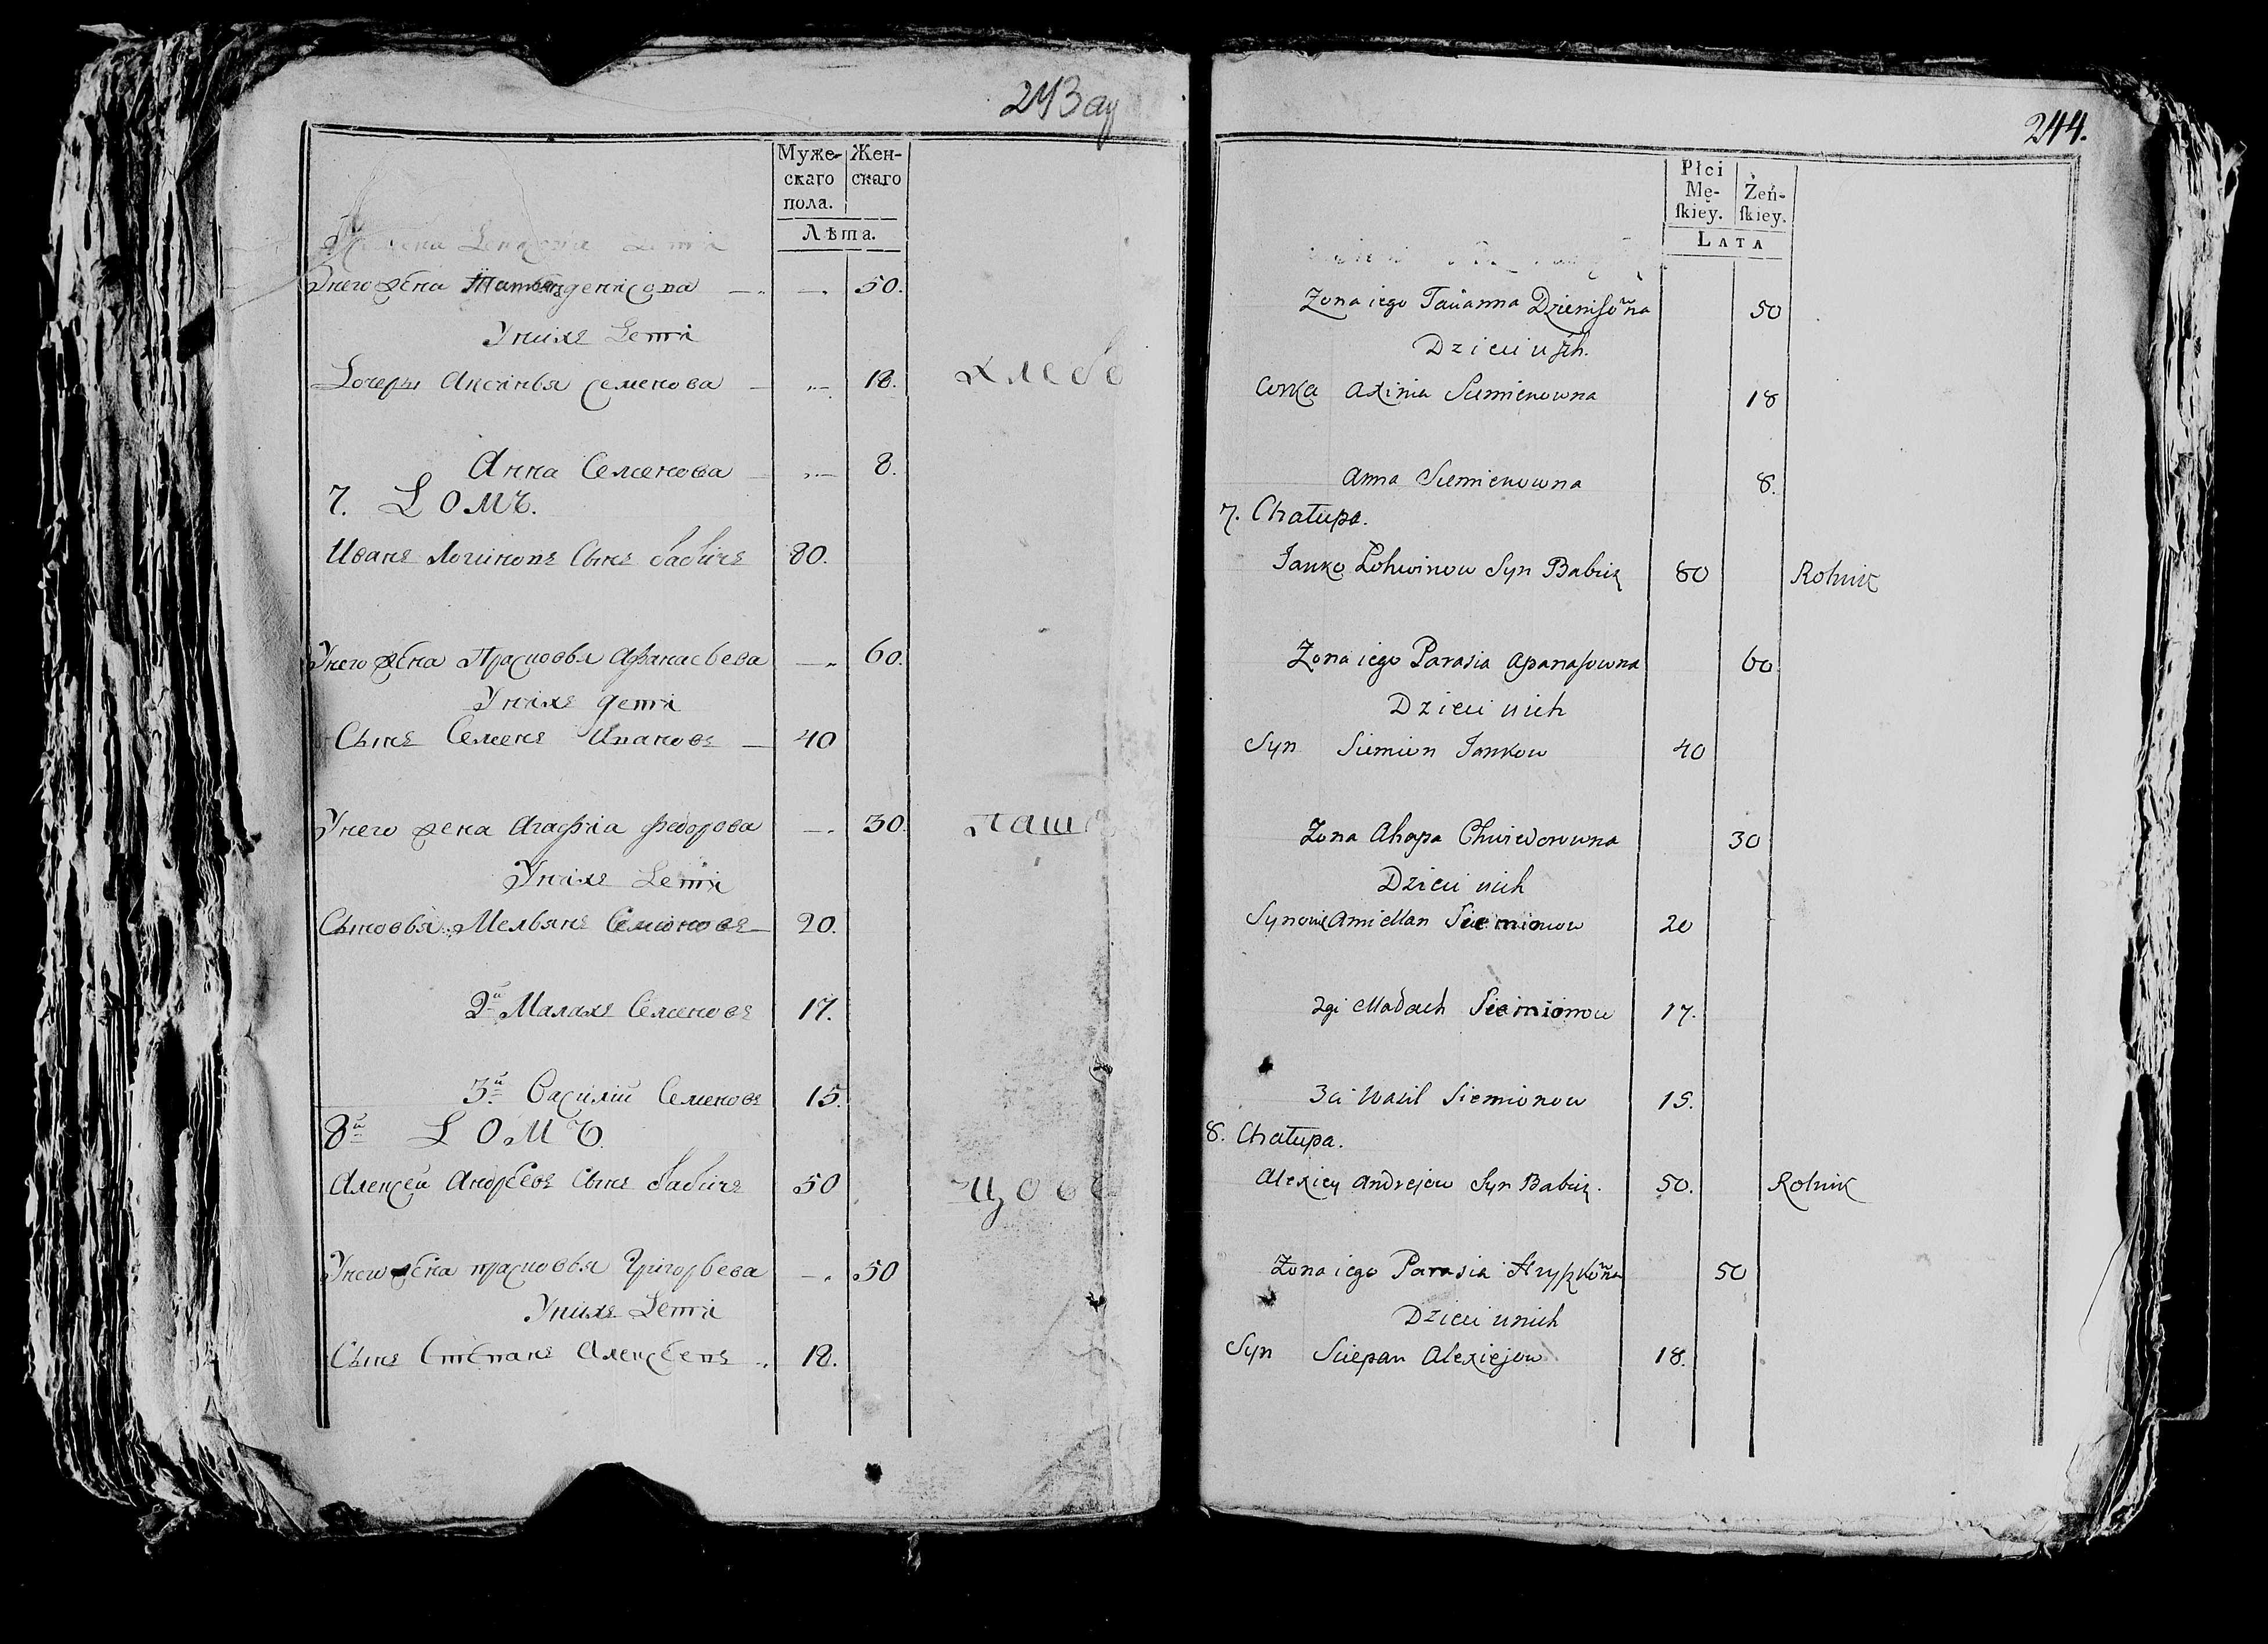 243 об
Муже-
скаго
пола.
Жен-
скаго
Лѣта.
Унего жена Татьяна денисова — — 50.
Унихъ Дети
Дочеры Аксинья семенова — 18. хлебо
Анна Семенова — 8.
7. ДОМЪ.
Иванъ Логиновъ Сынъ бабичъ 80.
Унего жена Прасковья Афанасьева — 60.
Унихъ дети
Сынъ Семенъ Ивановъ — 40
Унего жена Агафия федорова — 30. паш
Унихъ Дети
Сыновья Мельянъ Семеновъ — 20.
2й Малахъ Семеновъ 17.
3й Василии Семеновъ 15.
8й ДОМЪ.
Алексей Андреевъ Сынъ бабичъ 50
Унего жена прасковья Григорьева — 50
Унихъ Дети
Сынъ Степанъ Алексеевъ 18.
244.
Płci
Mę-
ſkiey.
Żeń-
ſkiey.
LATA
Zona iego Dzienisowna 50
Dzieci u ich.
Corka Axinia Siemienowna 18
Anna Siemienowna 8.
7. Chałupa.
Janko Łohwinow Syn Babicz 80 Rolnik
Zona iego Parasia Apanasowna 60
Dzieci u ich
Syn Siemion Jankow 40
Zona Ahapa Chwiedorowna 30
Dzieci u ich
Synowie Amiellan Siemionow 20
2gi Siemionow 17.
3ci Wasil Siemionow 15.
8. Chałupa.
Alexiey Andrejow Syn Babicz. 50. Rolnik
Zona iego Parasia Hryszkowna 50
Dzieci u nich
Syn Sciepan Alexiejow 18.